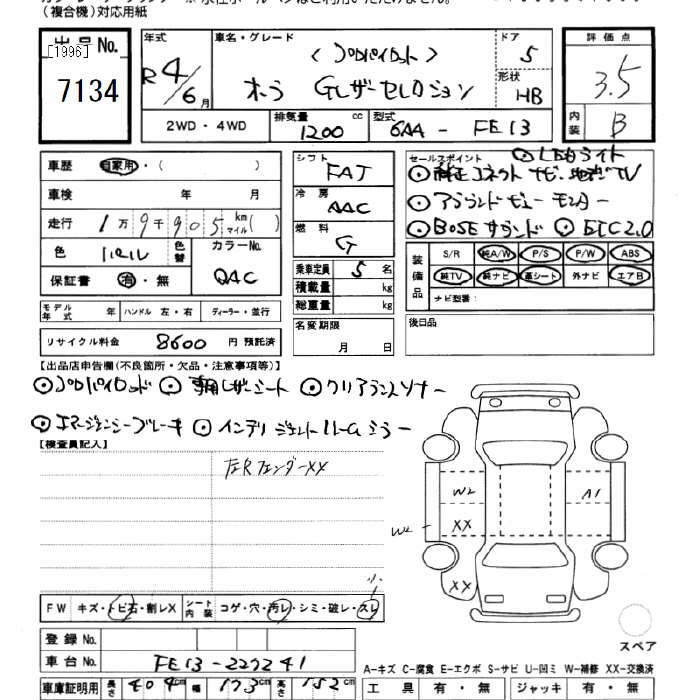 （複合機）対応用紙
出品No.
[1996]
7134
年式
R4/6月
車名・グレード
（プロパイロット）
オーラ Gレザーセレクション
ドア
5
形状
HB
評価点
3.5
内装
B
2WD・4WD
排気量 1200 cc
型式 6AA - FE13
車歴 自家用・( )
車検 年 月
走行 1万9千905km マイル( )
色 色替
カラーNo. QAC
保証書 有・無
シフト FAT
冷房 AAC
燃料 G
乗車定員 5 名
積載量 kg
総重量 kg
セールスポイント ⊙LEDライト
⊙純正コネクトナビ・地デジTV
⊙アラウンドビューモニター
⊙BOSEサウンド ⊙ETC2.0
装備品
S/R 純A/W P/S P/W ABS
純TV 純ナビ 革シート 外ナビ エアB
ナビ型番：
モデル年式 年 ハンドル 左・右 ディーラー・並行
名変期限 月 日
後日品
リサイクル料金 8600 円 預託済
【出品店申告欄(不良箇所・欠品・注意事項等)】
⊙プロパイロット ⊙専用レザーシート ⊙クリアランスソナー
⊙エマージェンシーブレーキ ⊙インテリジェントルームミラー
【検査員記入】
左Rフェンダーxx
W2 A1
W2 XX
XX
小
FW キズ・トビ石・割レX シート内装 コゲ・穴・汚レ・シミ・破レ・スレ
スペア
登録No.
車台No. FE13-227241
A-キズ C-腐食 E-エクボ S-サビ U-凹ミ W-補修 XX-交換済
車庫証明用 長さ 404cm 幅 173cm 高さ 152cm
工具 有・無 ジャッキ 有・無